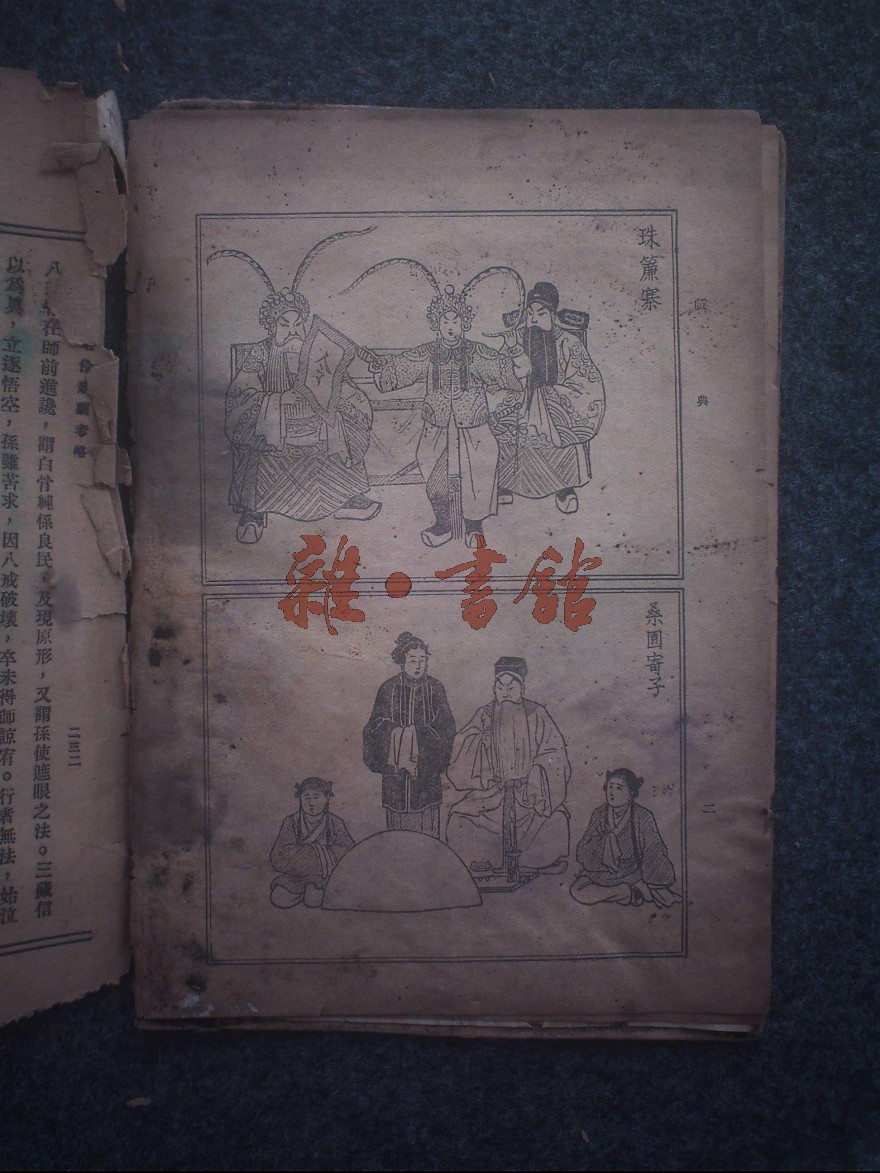 珠簾寨
戲典
桑園寄子
二
雜·書館
考略
二三二
在師前進讒，謂白骨純係良民，及現原形，又謂孫使遮眼之法。三藏信
以爲眞，立逐悟空，孫雖苦求，因八戒破壞，卒未得師諒宥。行者無法，始泣